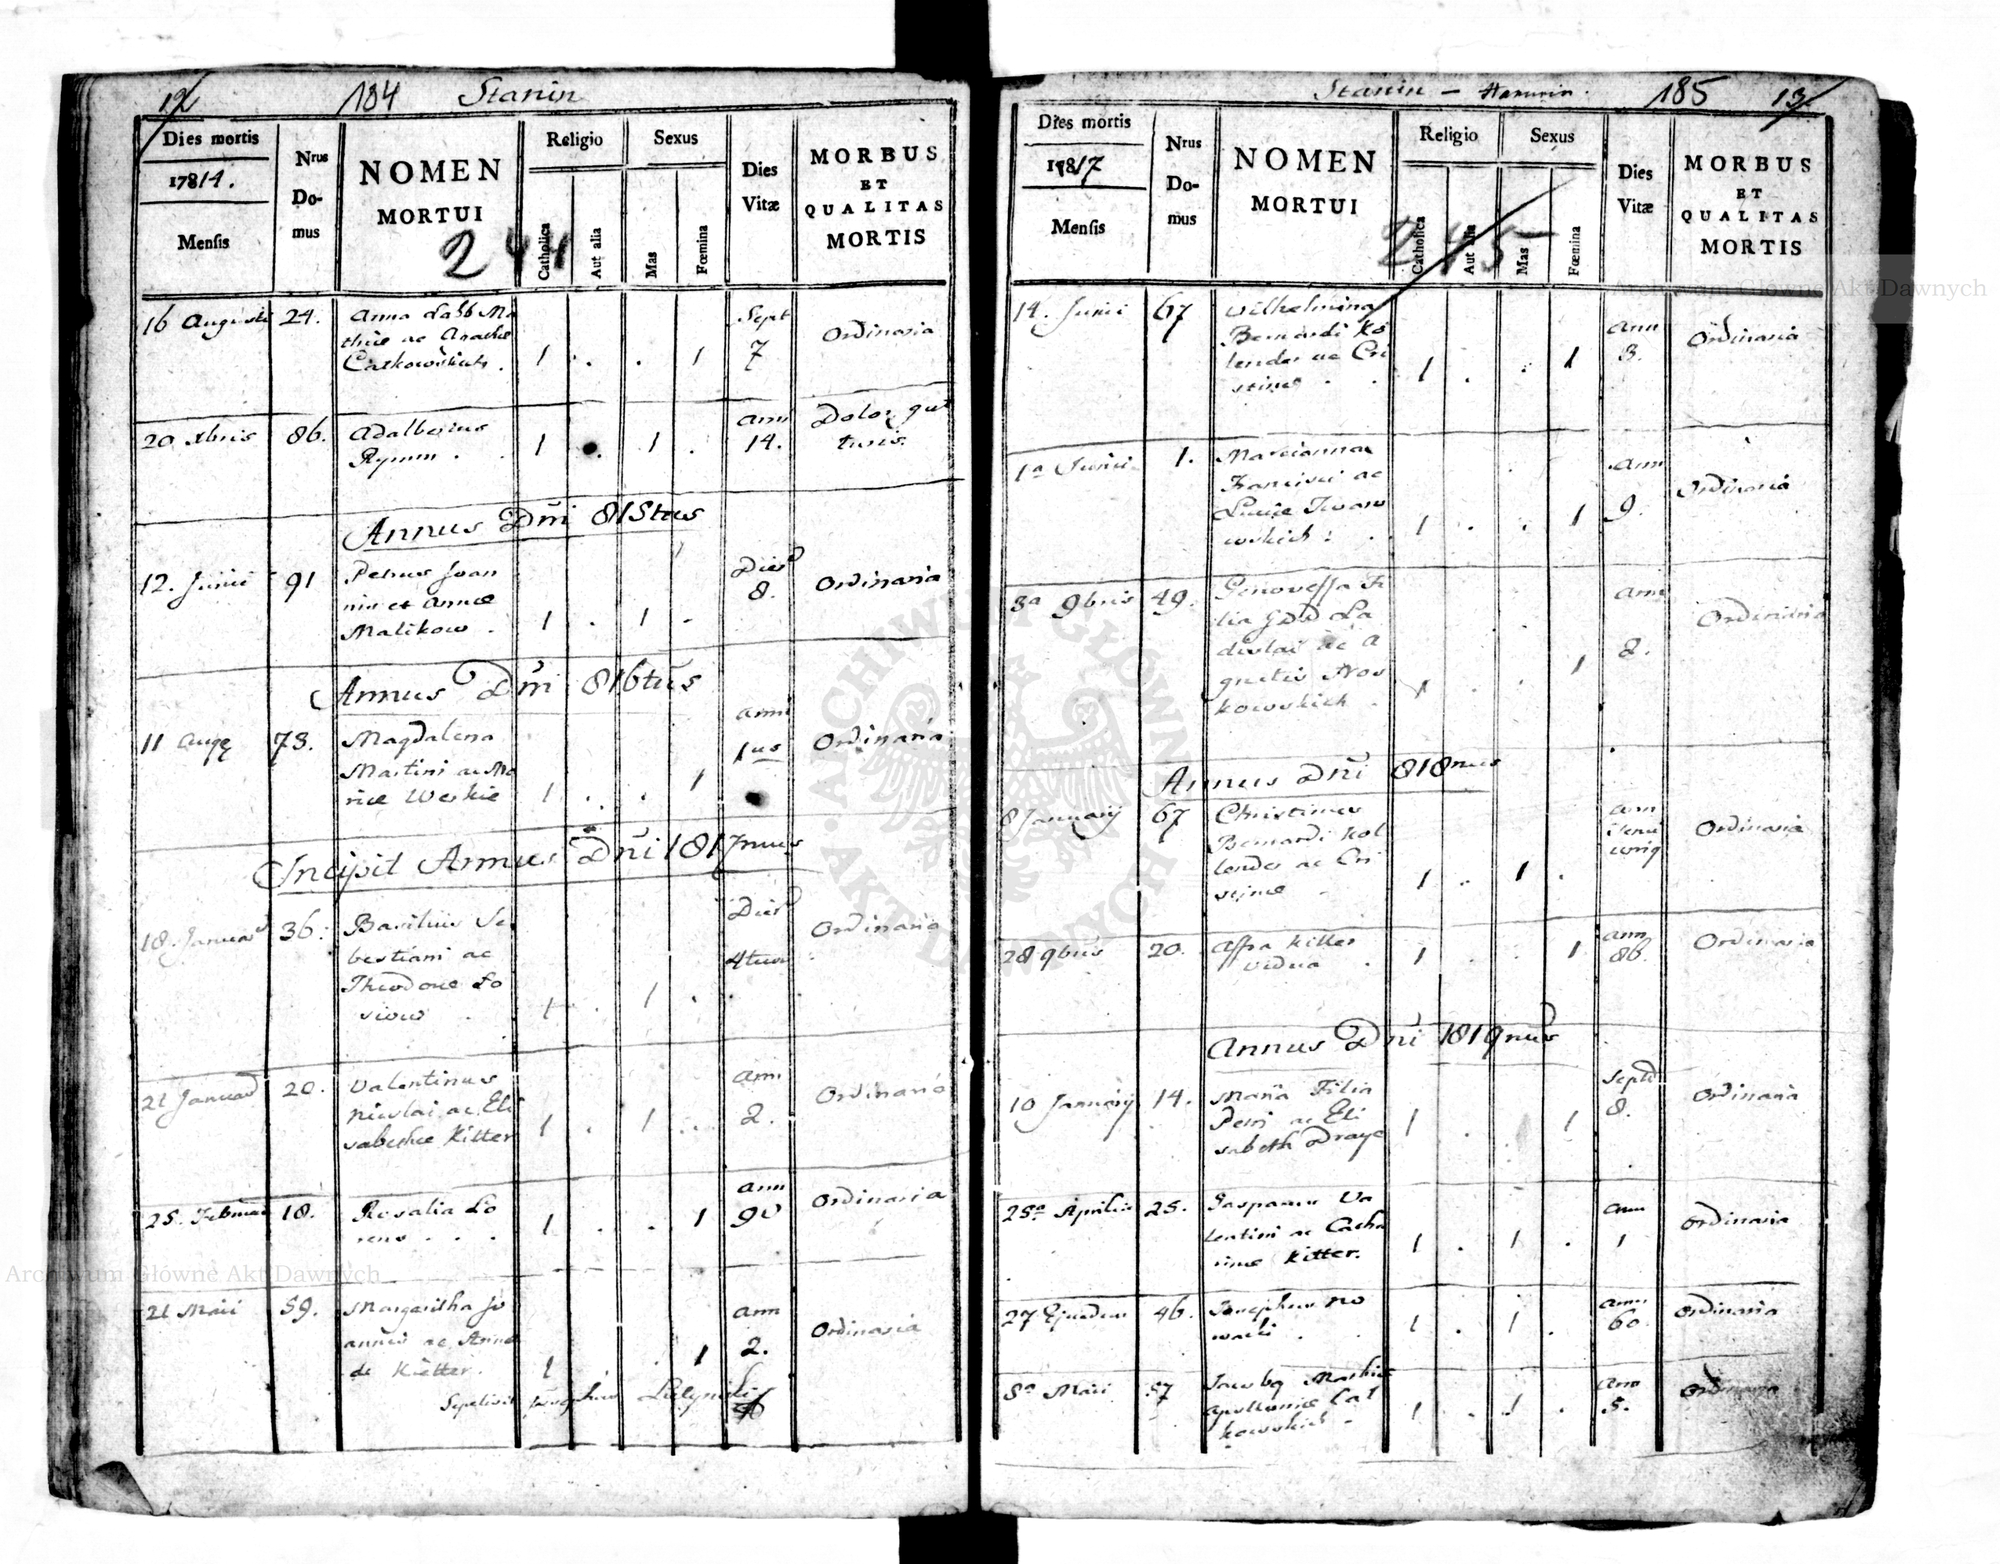 12 184 Stanin
Dies mortis
17814.
Mensis
Nrus
Do-
mus
NOMEN
MORTUI
244
Religio
Catholica
Aut alia
Sexus
Mas
Fœmina
Dies
Vitæ
MORBUS
ET
QUALITAS
MORTIS
16 Augusti 24. Anna Sabb Ma
thiæ ac
Catkowskich . 1 . . 1 Sept 7 Ordinaria
20 Xbris 86. Adalbertus
Rymm . . 1 . 1 . ann 14. Dolor gut
turis
Annus Dni 815tus
12. Junii 91 Petrus Joan
nis et Annæ
Malikow . 1 . 1 . Dier 8. Ordinaria
Annus Dni 816tus
11 Aug 73. Magdalena
Martini ac Ma
riæ Weskie 1 . . 1 anni 1us Ordinaria
Incipit Annus Dni 1817mus
18. Januar 36. Basilius Se
bestiani ac
Theodoræ Lo
siow . 1 . 1 . Dier 4tuor Ordinaria
21 Januar 20. Valentinus
Nicolai ac Eli
sabethæ Kitter 1 . 1 . ann 2. Ordinaria
25. Februar 18. Rosalia Lo
rens . . . 1 . . 1 ann 90 Ordinaria
21 Maii 59. Margaritha Jo
annis ac Anna
de Kietter. 1 . . 1 ann 2. Ordinaria
Sepelivit
Stanin – Hanunin. 185 13
Dies mortis
1817
Mensis
Nrus
Do-
mus
NOMEN
MORTUI
245
Religio
Catholica
Aut alia
Sexus
Mas
Fœmina
Dies
Vitæ
MORBUS
ET
QUALITAS
MORTIS
14. Junii 67 Wilhelmina
Bernardi Ko
lender ac Cri
stinæ . . 1 . . 1 Ann 3. Ordinaria
1a Junii 1. Mariannae
Francisci ac
Luciæ Iwano
wskich : . 1 . . 1 Ann 9. Ordinaria
3a 9bris 49. Genoveffa Fi
lia GDD La
dislai ac A
gnetis Nos
kowskich . 1 . . 1 Ann 2. Ordinaria
Annus Dni 818nus
8 January 67 Christinus
Bernardi Kol
lender ac Cri
stinæ . 1 . 1 . ann Ordinaria
28 9bris 20. Affra Kitter
vidua . 1 . . 1 ann 86. Ordinaria
Annus Dni 1819nus
10 January 14. Maria Filia
Petri ac Eli
sabeth Draye 1 . . 1 Sept 8. Ordinaria
25a Aprilis 25. Gasparus Va
lentini ac Catha
rinæ Kitter. 1 . 1 . ann 1 Ordinaria
27 Ejusdem 46. Josephus No
wacki . 1 . 1 . ann 60. Ordinaria
5a Maii 57 Mathiæ
Apolloniæ Cat
kowskich . 1 . 1 . Ann 5. Ordinaria
ARCHIWUM GŁÓWNE AKT DAWNYCH
Archiwum Główne Akt Dawnych
Archiwum Główne Akt Dawnych